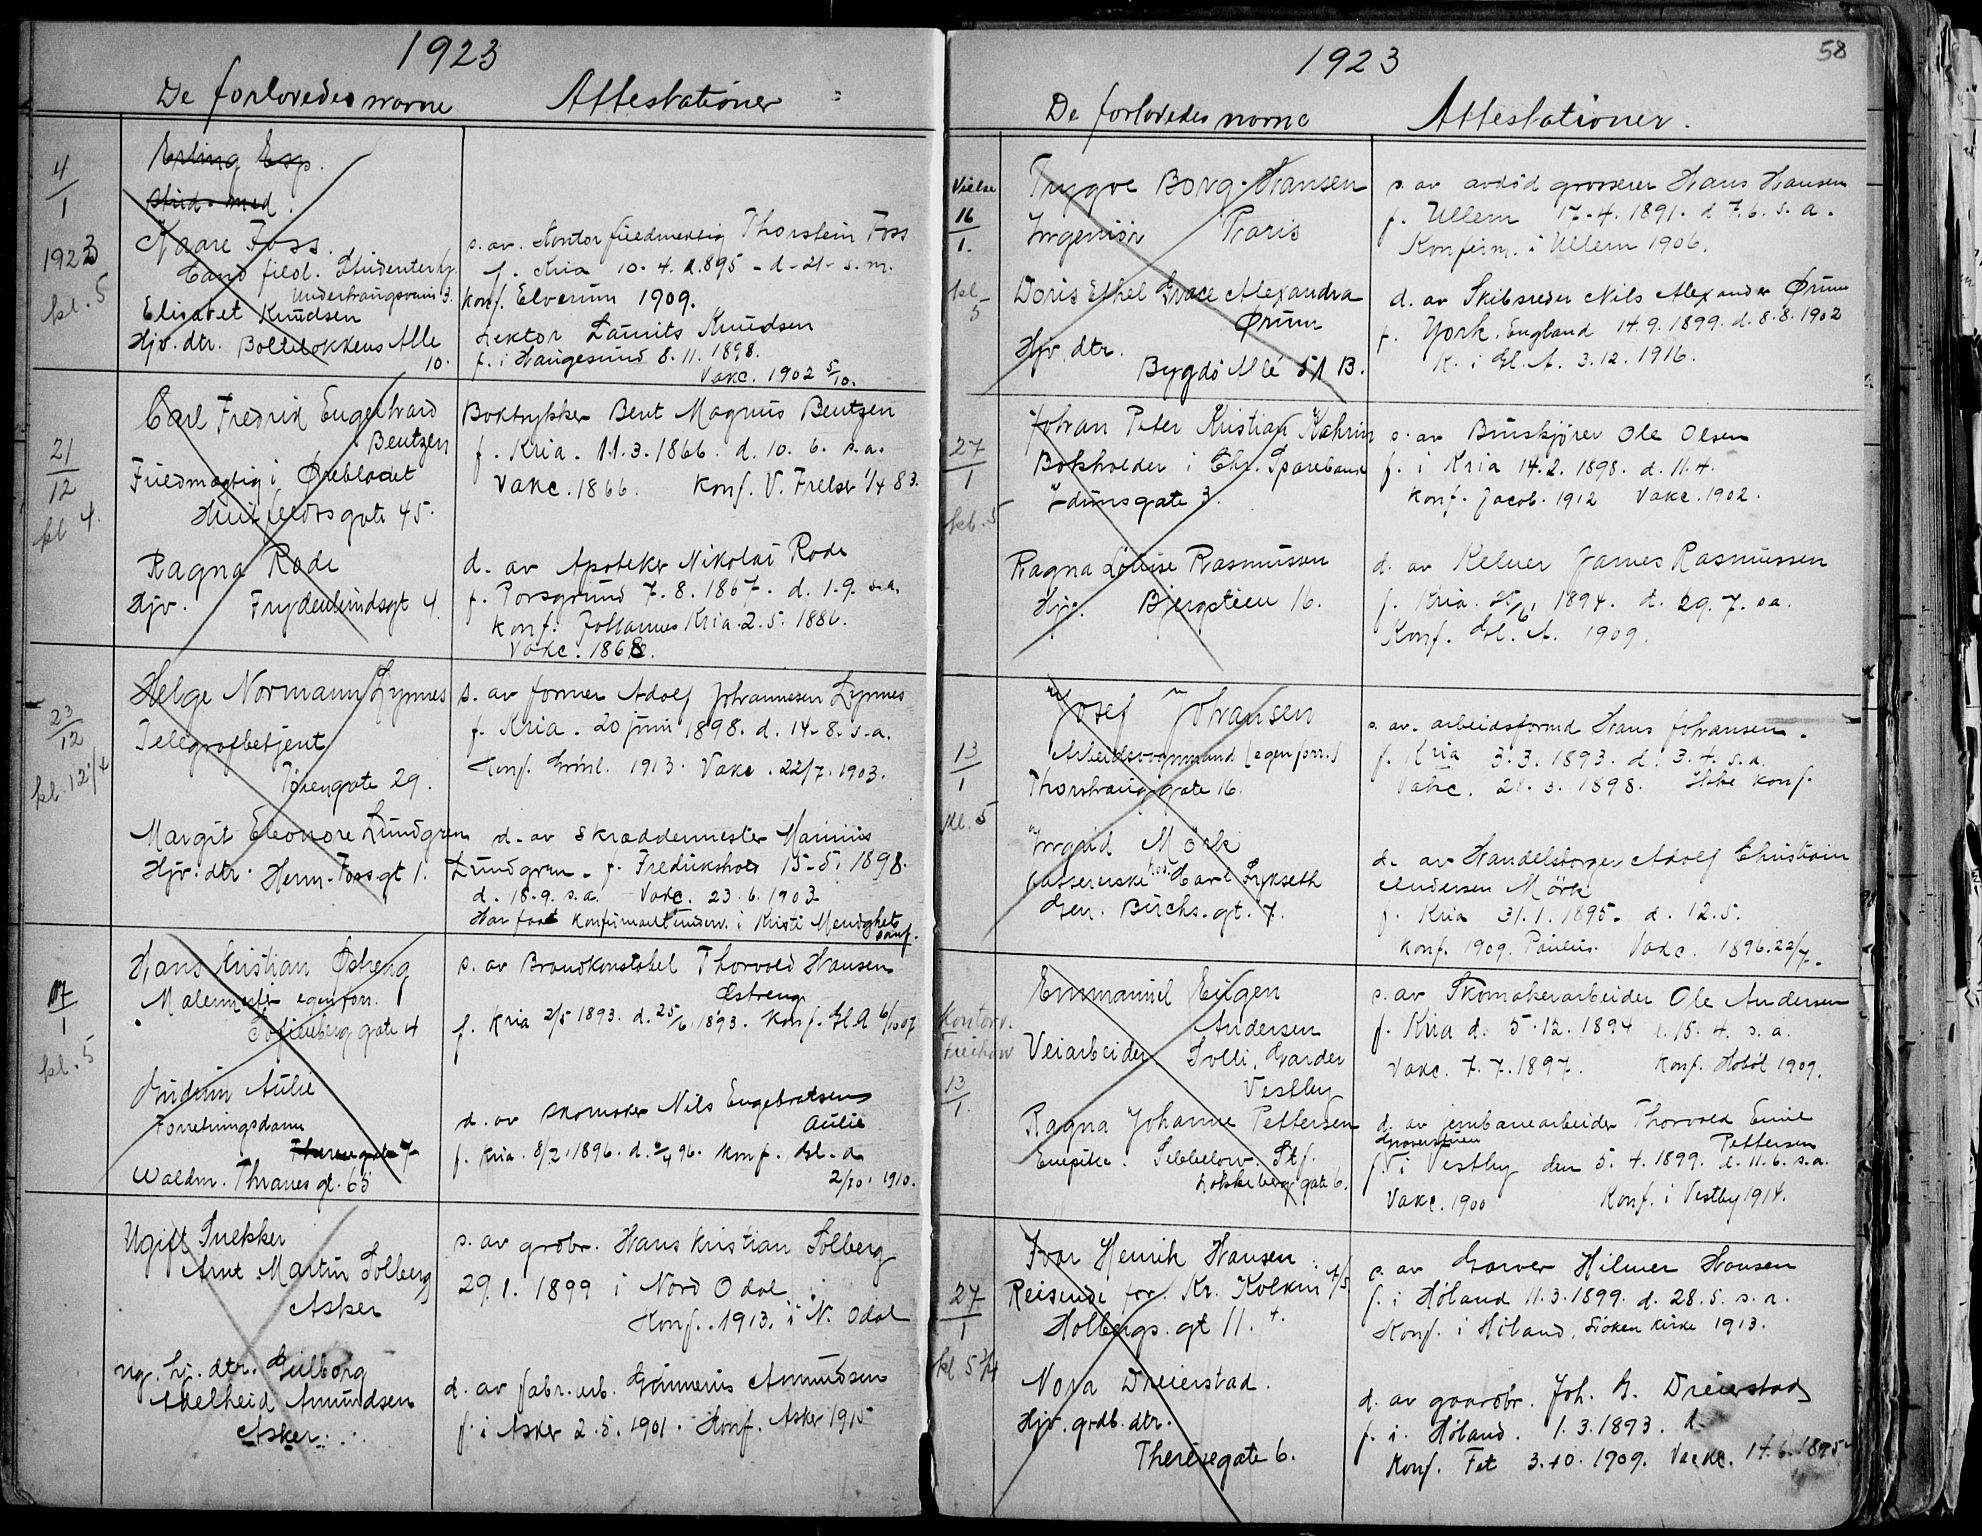 1923
De forlovedes navne Attestationer
4/1 1923 kl. 5
Erling Esp.
stud. med.
Kaare Foss.
Cand. filol. Studenterhj.
Underhaugsvein 3.
Elisabet Knudsen
Hjv. dtr. Bolteløkkens Alle
10.
s. av. Kontorfuldmektig Thorstein Foss
f. Kria 10. 4. 1895 - d - 21 - s. m.
konf. Elverum 1909.
Lektor Laurits Knudsen
f. i Haugesund 8. 11. 1898.
Vakc. 1902 5/10.
21/12 kl 4.
Carl Fredrik Engelhard
Bentzen
Fuldmægtig i Ørebladet
Huitfeldtsgate 45.
Boktrykker Bent Magnus Bentzen
f. Kria. 11. 3. 1866. d. 10. 6. s. a.
Vakc. 1866. konf. V. Frelser 1/4 83.
Ragna Rode
Hjv. Frydenlundsgt 4.
d. av Apoteker Nikolai Rode
f. Porsgrund 7. 8. 1867. d. 1. 9. s. a.
konf. Johannes Kria. 2. 5. 1886.
Vakc. 1868.
23/12 kl. 12 1/4
Helge Normann Lynnes
Telegrafbetjent
Tøiengate 29.
s. av former Adolf Johannesen Lynnes
f. Kria. 20 juni 1898. d. 14. 8. s. a.
Konf. Grønl. 1913. Vakc. 22/7. 1903.
Margit Eleonore Lundgren
Hjv. dtr. Herm. Fossgt 1.
d. av skræddermester Marinius
Lundgren. f. Fredrikshald 15. 5. 1898.
d. 18. 9. s. a. Vakc. 23. 6. 1903
Har faat konfirmantunderv. i Kristi Menighets
samf.
17/1 kl. 5
Hans Kristian Østreng
Malermester egen forr.
Sofienberg gate 4
s. av Brandkonstabel Thorvald Hansen
Østreng
f. Kria 2/5 1893. d. 25/6. 1893. Konf. Gl. A 6/10 07
Gudrun Aulie
Forretningsdame
Theresgate 7
Waldm. Thranes gt. 65
d. av skomaker Nils Engebretsen
Aulie
f. Kria. 8/2. 1896. d. 6/4 96. Konf. Gl. A
2/10. 1910.
Ugift Snekker
Arnt Martin Solberg
Asker
s. av grdbr. Hans Kristian Solberg
29. 1. 1899 i Nord Odal
Konf. 1913. i N. Odal
ug. hj. dtr. Gulborg
Adelheid Amundsen
Asker.
d. av fabr. arb. Gunnerius Amundsen
f. i Asker 2. 5. 1901. Konf. Asker 1915
58
1923
De forlovedes navne Attestationer.
Vielse 16/1. kl 5
Trygve Borg-Hansen
Ingeniør Paris
s. av avdød grosserer Hans Hansen
f. Ullern 17. 4. 1891. d 7. 6. s. a.
Konfirm. i Ullern 1906.
Doris Ethel Grace Alexandra
Ørum
Hjv. dtr.
Bygdø Allé 51 B.
d. av Skibsreder Nils Alexander Ørum
f. York. England 14. 9. 1899. d. 8. 8. 1902
K. i Gl. A. 3. 12. 1916.
27/1 kl. 5
Johan Peter Kristian Kahrin
Bokholder i Chr. Sparebank
Idunsgate 3.
s. av Buskjører Ole Olsen
f. i Kria 14. 2. 1898. d. 11. 4.
Konf. Jacob. 1912 Vakc. 1902.
Ragna Louise Rasmussen
Hjv. Bjergstien 16.
d. av Kelner James Rasmussen
f. Kria. 1894. d. 29. 7. s a.
Konf. Gl. A. 1909.
13/1 kl. 5
Josef Johansen
Arbeidsvognmand (egen forr.)
Thorshaug gate 16.
s. av. arbeidsformd Hans Johansen.
f. Kria 3. 3. 1893. d. 3. 4. s. a.
Vakc. 28. 3. 1898. ikke konf.
Ingrid Mørk
Kassererske hos Carl Lykseth
Gen. Birchs. gt. 7.
d. av Handelsborger Adolf Christian
Andersen Mørk
f. Kria 31. 1. 1895. d. 12. 5.
Konf. 1909. Paulus. Vakc. 1896. 22/7.
Kontor. 13/1.
Emmanuel Eugen
Andersen
Veiarbeider Solli, Garder
Vestby
s. av Skomakerarbeider Ole Andersen
f. Kria d. 5. 12. 1894 d. 15. 4. s. a.
Vakc. 7. 7. 1897. Konf. Hobøl 1909.
Ragna Johanne Pettersen
Enepike.
Løkkeberg gate 6.
d. av jernbanearbeider Thorvald Emil
Pettersen
f. i Vestby den 5. 4. 1899. d. 11. 6. s. a.
Vakc. 1900 Konf. i Vestby 1914.
27/1 kl 5 3/4
Ivar Henrik Hansen
Reisende for Kr. Kolkin A/S
Holbergs. gt 11. 4.
s. av Garver Hilmer Hansen
f. i Høland 11. 3. 1899. d. 28. 5. s. a.
Konf. i Høland, Løken kirke 1913.
Nora Dreierstad.
Hjv. grdb. dtr.
Theresegate 6.
d. av gaardbr. Joh. A. Dreierstad
f. i Høland. 1. 3. 1893. d.
Konf. Fet 3. 10. 1909. Vakc. 14. 6. 1895